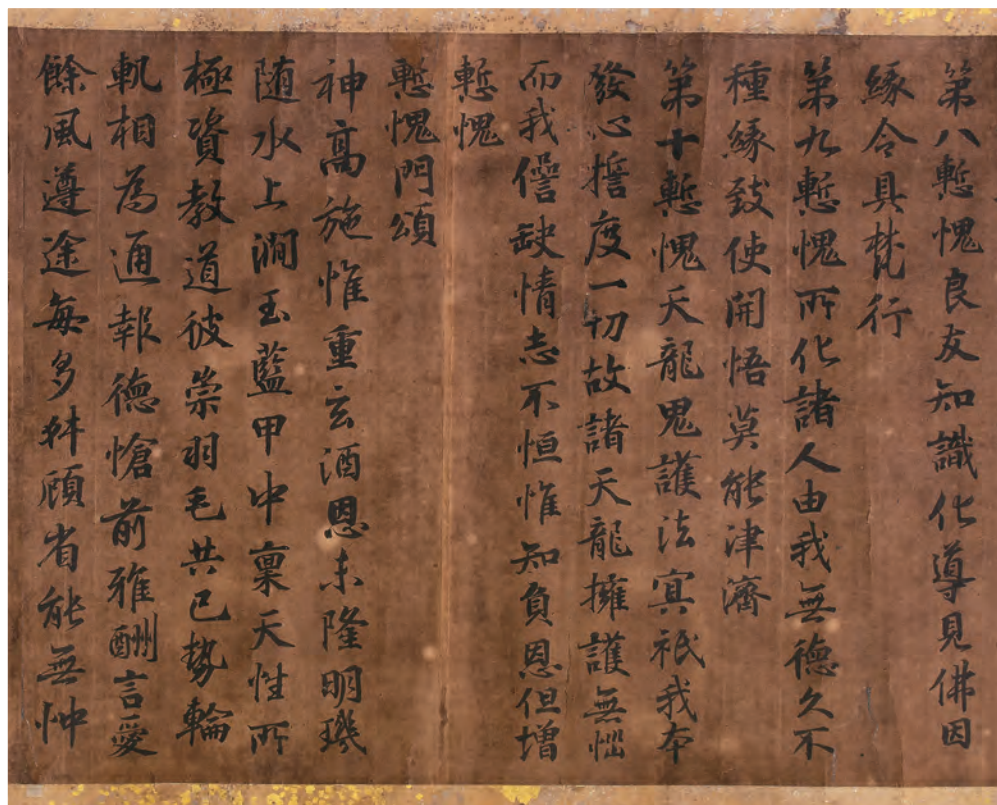 第八慙愧良友知識化導見佛因
緣令具梵行
第九慙愧所化諸人由我無德久不
種緣致使開悟莫能津濟
第十慙愧天龍鬼護法冥祇我本
發心擔度一切故諸天龍擁護無怪
而我僭缺情志不恒惟知負恩但增
慙愧
慙愧門頌
神高施惟重玄酒恩未隆明璣
随水上澗玉藍田中稟天性所
極資教道彼崇羽毛共已勢輪
軌相為通報德愴前雅酬言愛
餘風遵途每多舛顧省能無忡